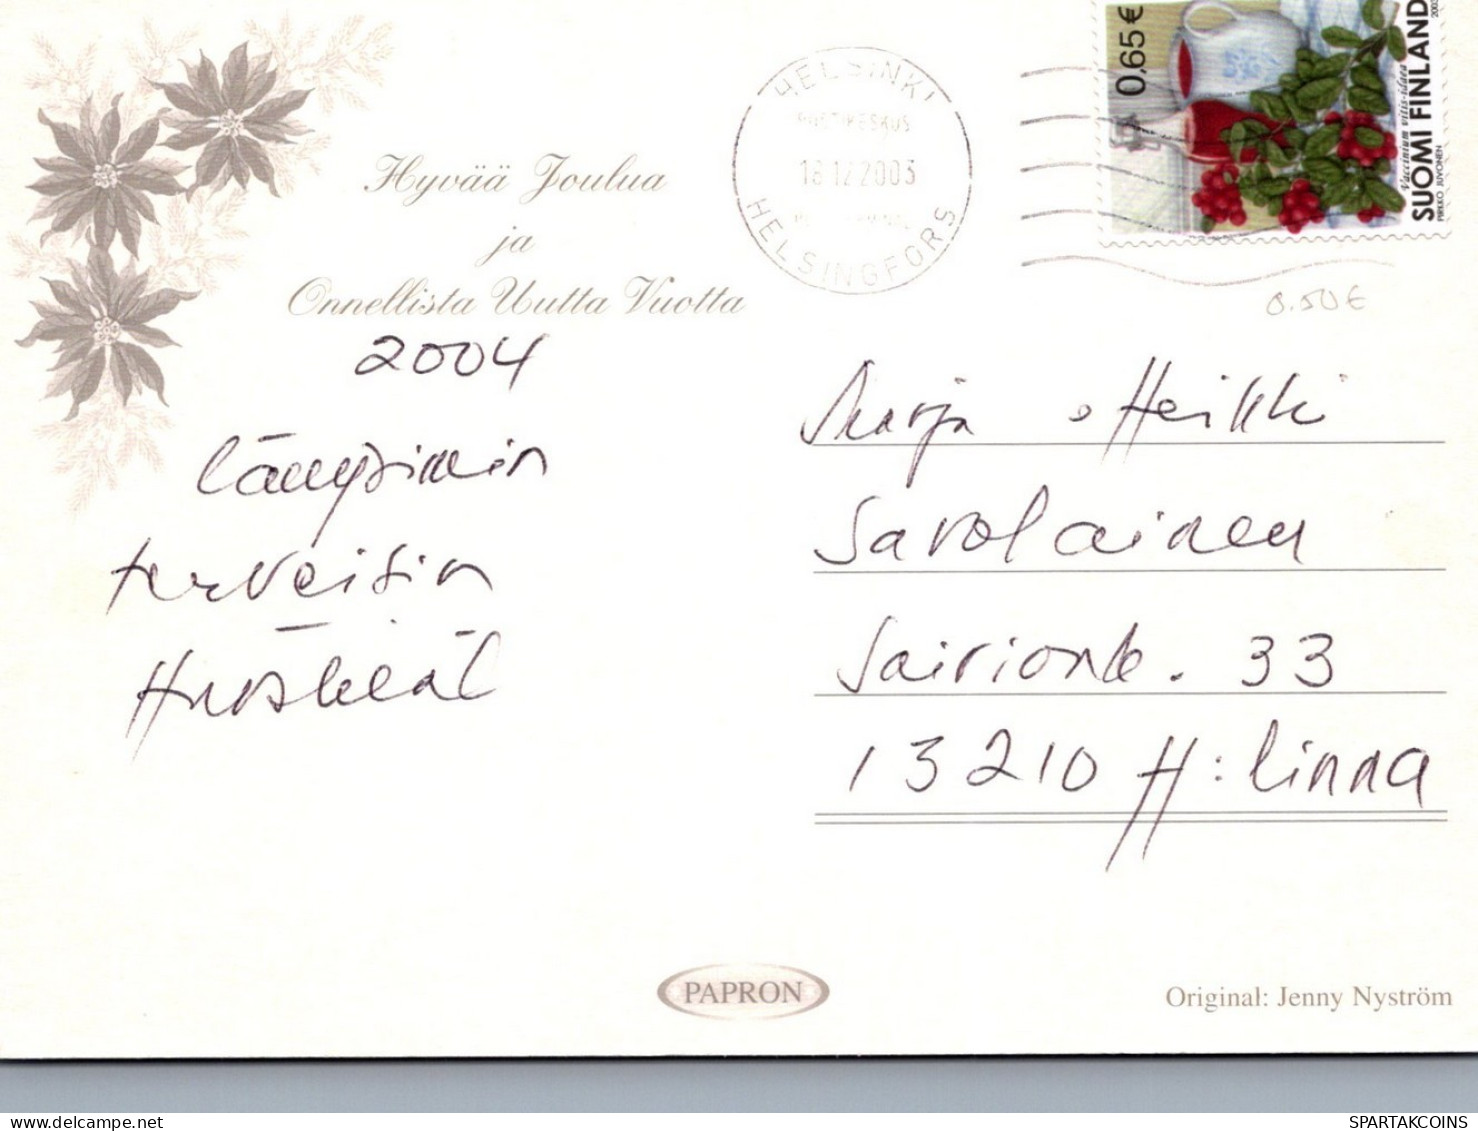 Hyvää Joulua
ja
Onnellista Uutta Vuotta
2004
Lämpimin
terveisin
HELSINKI
POSTIKESKUS
18.12.2003
HELSINGFORS
0,65 €
Vaccinium vitis-idaea
SUOMI FINLAND
PIRKKO JUVONEN
2003
0.50€
Marja & Heikki
Savolainen
Sairionk. 33
13210 H:linna
PAPRON
Original: Jenny Nyström
SPARTAKCOINS.COM